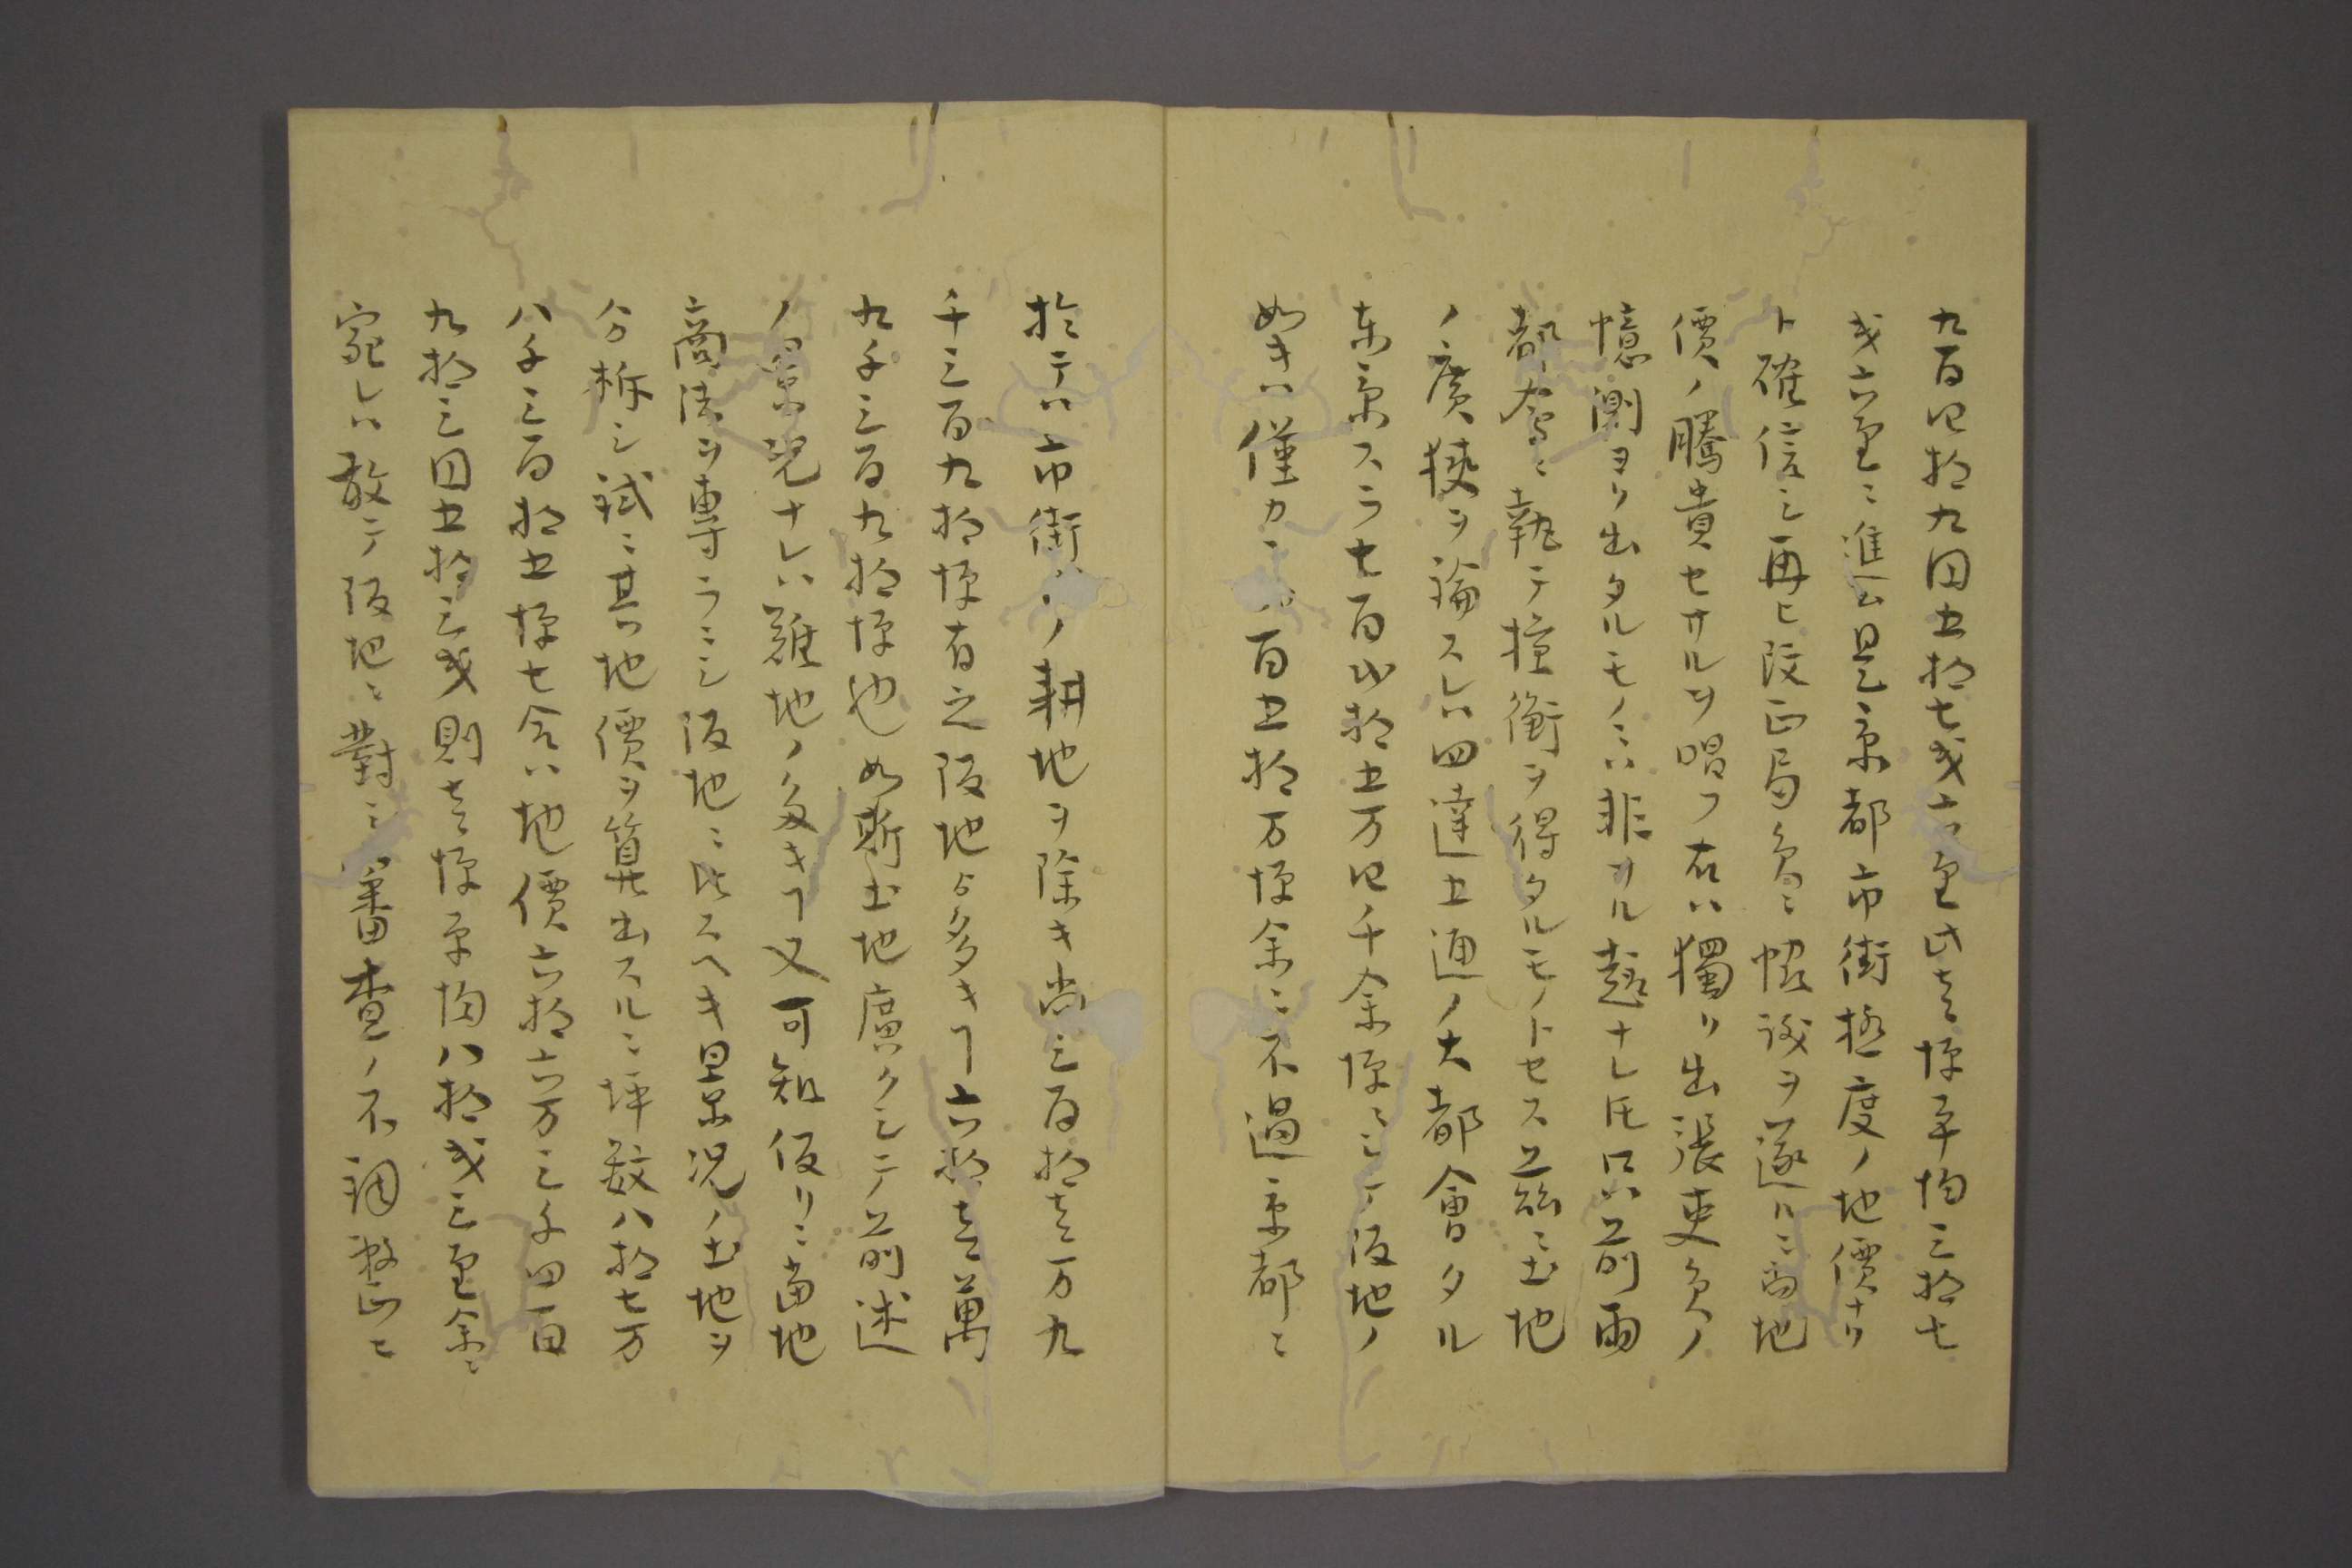 九百四拾九円五拾七戋六厘此壱坪平均三拾七
戋六厘ニ進ム是京都市街極度ノ地價ナリ
ト確信シ再ヒ改正局員ニ協議ヲ遂ルニ当地
價ノ騰貴セサルヲ唱フ右ハ獨リ出張吏員ノ
憶測ヨリ出タルモノニハ非サル趣ナレ𪜈只ハ前両
都府ニ執テ權衡ヲ得タルモノトセス且茲ニ土地
ノ廣狭ヲ論スレハ四達五通ノ大都會タル
東京スラ七百弐拾五万四千余坪ニシテ阪地ノ
如キハ僅カニ百五拾万坪余ニ不過京都ニ
於テハ市街ノ耕地ヲ除キ尚三百拾壱万九
千三百九拾坪有之阪地ゟ多キヿ六拾壱萬
九千三百九拾坪也如斯土地廣クシテ前述
ノ景况ナレハ難地ノ多キヿ又可知仮リニ当地
商法ヲ専ラニシ阪地ニ比スヘキ景况ノ土地ヲ
分柝シ試ニ其地價ヲ算出スルニ坪数八拾七万
八千三百拾五坪七合ハ地價六拾六万三千四百
九拾三円五拾三戋則壱坪平均八拾戋三厘余ニ
宛レハ敢テ阪地ニ對シ審査ノ不調整モ